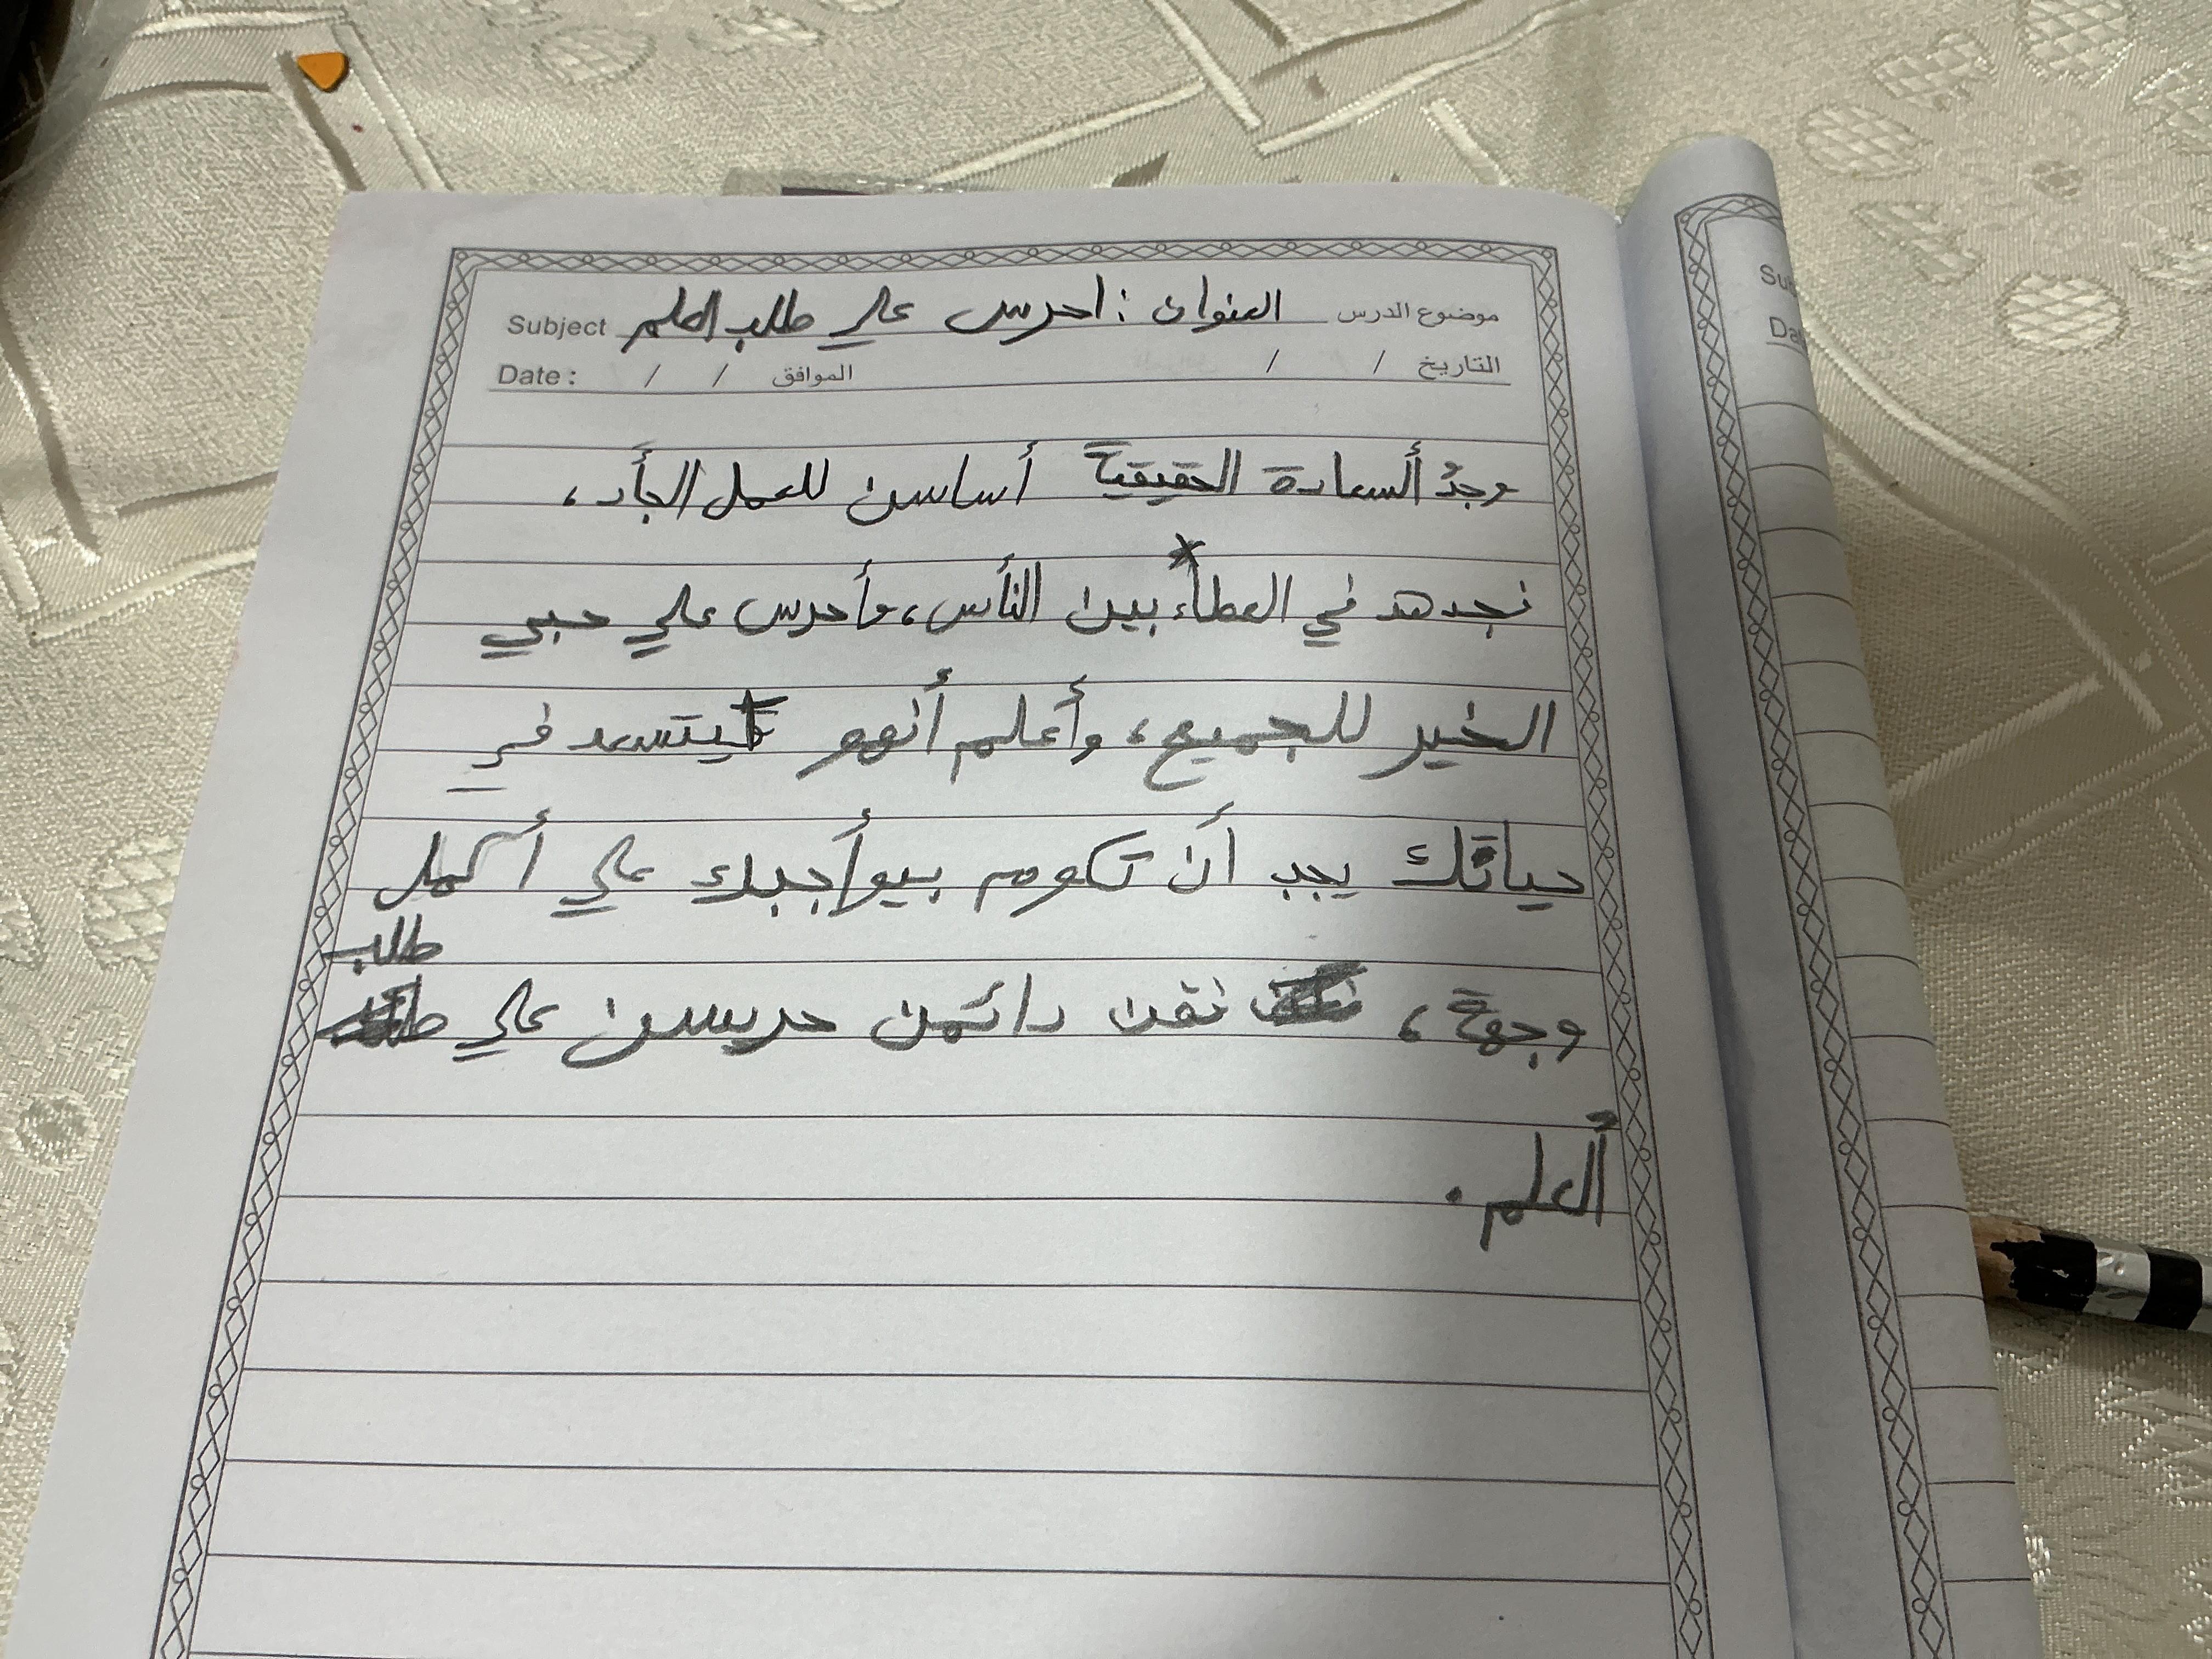 موضوع الدرس العنوان : احرس علي طلب العلم Subject
التاريخ / / الموافق / / Date :
وجدُ ألسعادة الحقيقية أساسن للعمل الجأد ،
نجدهد في العطأء بين النأس ، وأحرس علي حبي
الخير للجميع ، وأعلم أنهو يتسعد في
حياتك يجب أن تكوم بيوأجبك علي أكمل
وجهة ، نقن دائمن حريسن علي طلب
ألعلم .
Sub
Da